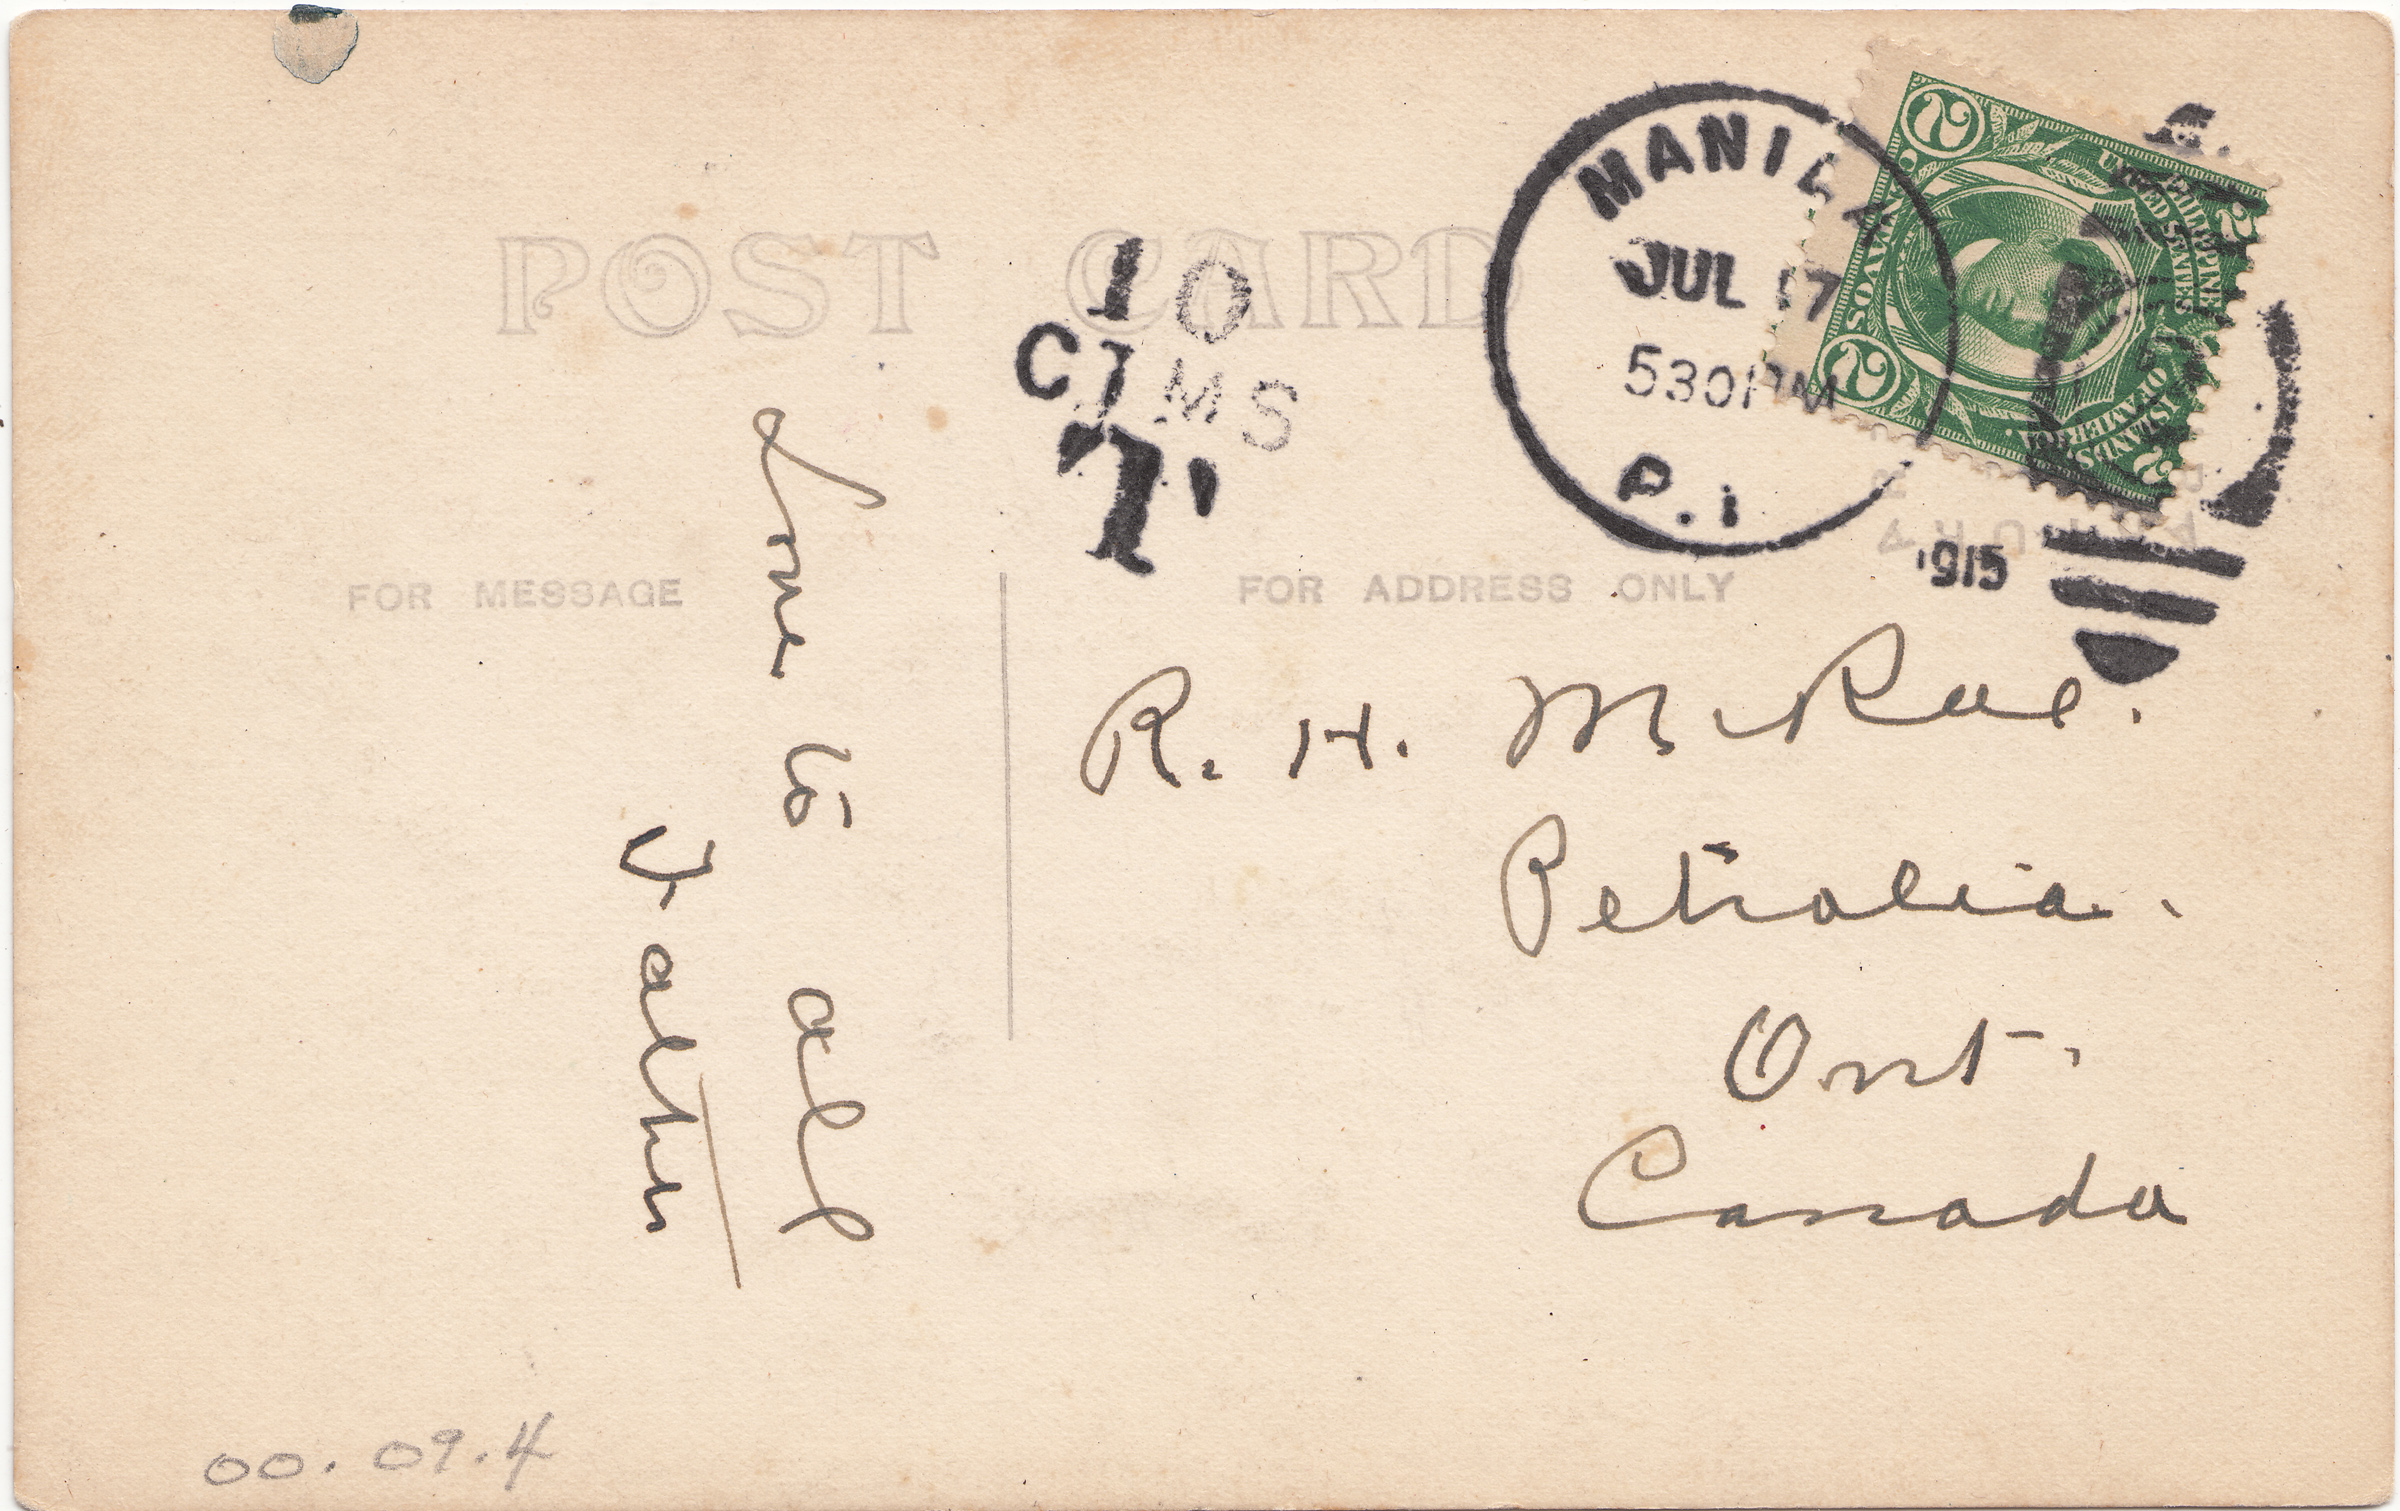 POST CARD
10
CTMS
T
MANILA
JUL 17
530 PM
P.I.
1915
PHILIPPINE ISLANDS
UNITED STATES OF AMERICA
2 2
2 2
DOS CENTAVOS
FOR MESSAGE
FOR ADDRESS ONLY
Love to all
Walter
R. H. McRae.
Petrolia.
Ont.
Canada
00.09.4